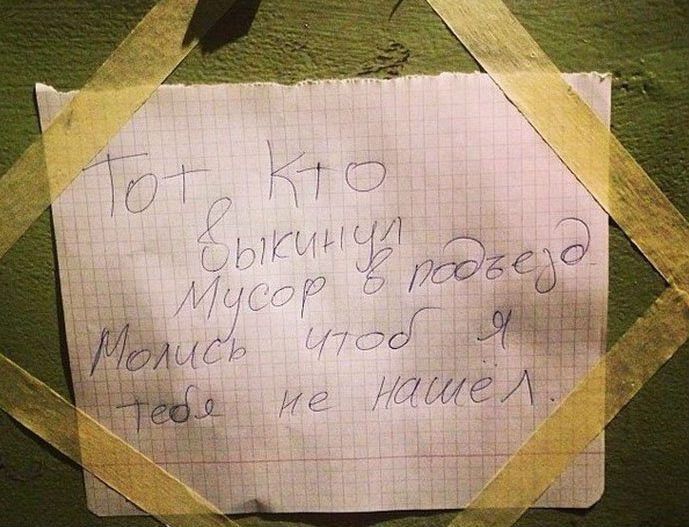 Тот Кто
выкинул
Мусор в подъезд.
Молись чтоб я
тебя не нашёл.